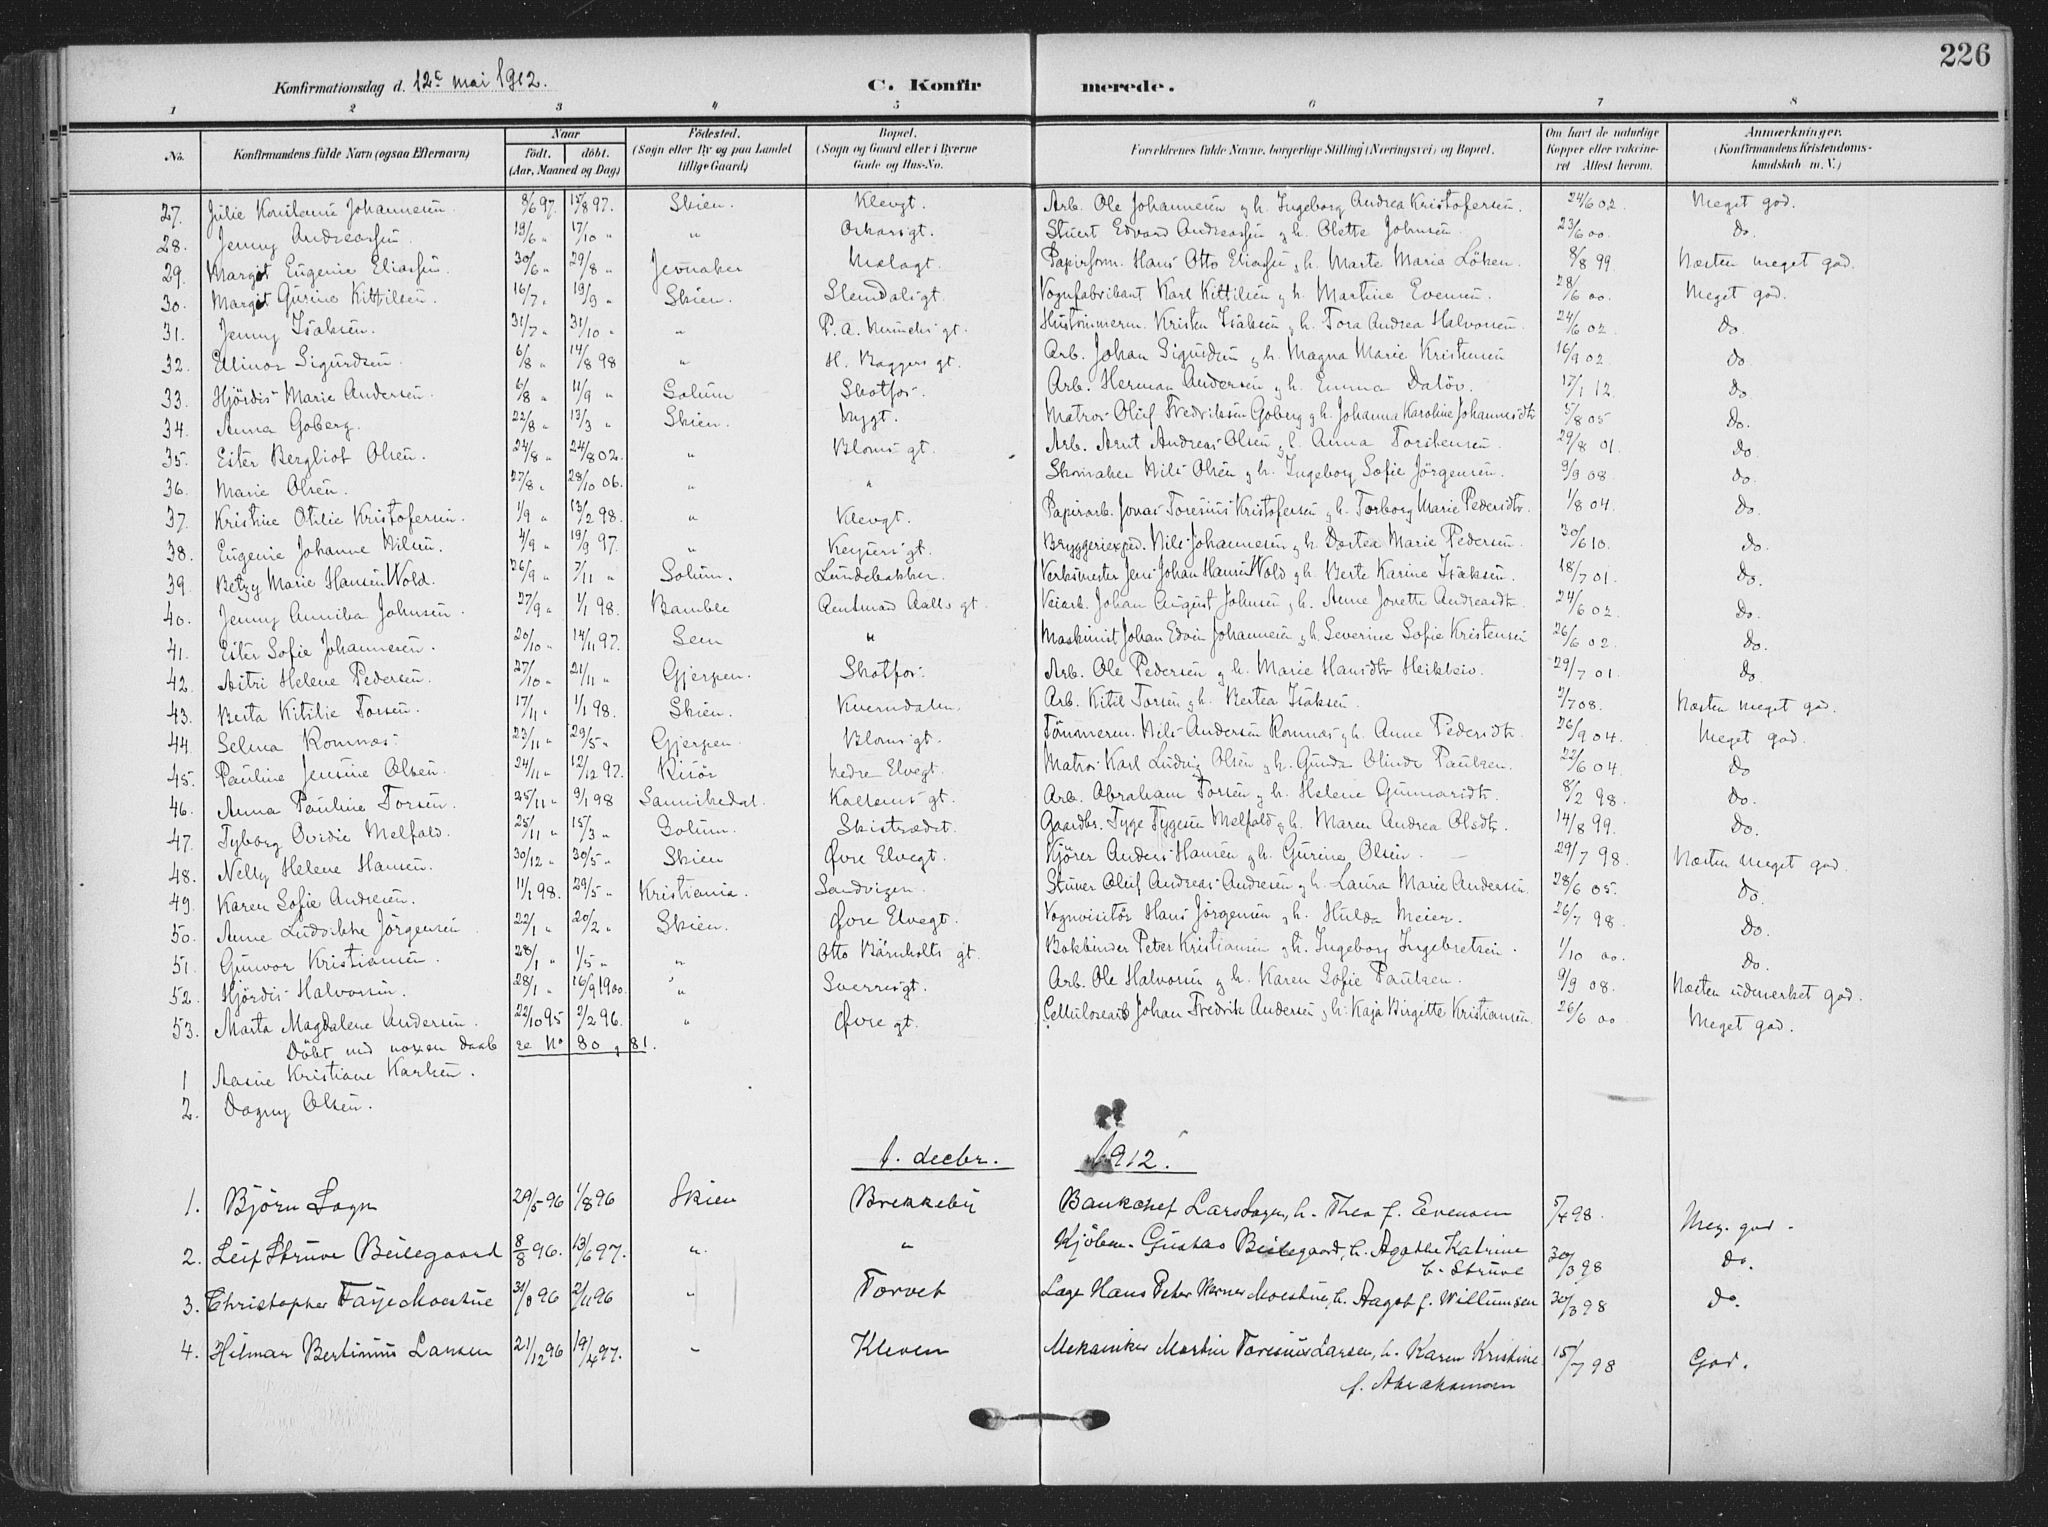 226
Konfirmationsdag d. 12e mai 1912. C. Konfirmerede.
1 2 3 4 5 6 7 8
No. Konfirmandens fulde Navn (ogsaa Efternavn) Naar født. døbt. (Aar, Maaned og Dag) Fødested. (Sogn eller By og paa Landet tillige Gaard) Bopæl. (Sogn og Gaard eller i Byerne Gade og Hus-No. Forældrenes fulde Navne, borgerlige Stilling (Næringsvei) og Bopæl. Om havt de naturlige Kopper eller vakcineret Attest herom. Anmærkninger. (Konfirmandens Kristendomskundskab m. V.)
27. Julie Konstanse Johannesen. 8/6 97. 15/8 97. Skien. Klevgt. Arb. Ole Johannesen & h. Ingeborg Andrea Kristofersen. 24/6 02. Meget god.
28. Jenny Andreassen. 19/6 " 17/10 " " Oskarsgt. Stuert Edvard Andreassen & h. Olette Johnsen. 23/6 00. Do.
29. Margit Eugenie Eliassen. 30/6 " 29/8 " Jevnaker Mælagt. Papirform. Hans Otto Eliassen & h. Marte Maria Löken. 8/8 99 Næsten meget god.
30. Margit Gurine Kittilsen. 16/7 " 19/9 " Skien. Stendalsgt. Vognfabrikant Karl Kittilsen & h. Martine Evensen. 28/6 00. Meget god.
31. Jenny Isaksen. 31/7 " 31/10 " " P. A. Munchs gt. Hustömmerm. Kristen Isaksen & h. Tora Andrea Halvorsen. 24/6 02. Do
32. Ellinor Sigurdsen. 6/8 " 14/8 98 " H. Baggers gt. Arb. Johan Sigurdsen & h. Magna Marie Kristensen 16/9 02 Do
33. Hjördis Marie Andersen. 6/8 " 11/9 " Solum Skotfos. Arb. Herman Andersen & h. Emma Dalöv. 17/1 12. Do.
34. Anna Goberg. 22/8 " 13/3 " Skien. Nygt. Matros Oluf Fredriksen Goberg & h. Johanna Karoline Johannesdtr 5/8 05 Do.
35. Ester Bergliot Olsen. 24/8 " 24/8 02. " Bloms gt. Arb. Arnt Andreas Olsen & h. Anna Torstensen. 29/8 01. Do.
36. Marie Olsen. 27/8 " 28/10 06. " " Skomaker Nils Olsen & h. Ingeborg Sofie Jörgensen. 9/9 08. Do.
37. Kristine Otilie Kristofersen. 1/9 " 13/2 98. " Klevgt. Papirarb. Jonas Toresius Kristofersen & h. Torborg Marie Pedersdtr. 1/8 04. Do.
38. Eugenie Johanne Nilsen. 4/9 " 19/9 97. " Keysersgt. Bryggeriexped. Nils Johannesen & h. Dortea Marie Pedersen. 30/6 10. Do.
39. Betzy Marie Hansen Wold. 26/9 " 7/11 " Solum. Lundebakken. Verksmester Jens Johan Hansen Wold & h. Berte Karine Isaksen. 18/7 01. Do.
40. Jenny Annika Johnsen. 27/9 " 1/1 98. Bamble Amtmad Aalls gt. Veiarb. Johan August Johnsen & h. Anne Jonette Andreasdtr. 24/6 02. Do.
41. Ester Sofie Johannesen. 20/10 " 14/11 97. Sem " Maskinist Johan Edvin Johannesen & h. Severine Sofie Kristensen 26/6 02. Do.
42. Astri Helene Pedersen. 27/10 " 21/11 " Gjerpen. Skotfos. Arb. Ole Pedersen & h. Marie Hansdtr Heikbeio. 29/7 01. Do
43. Berta Kitilie Torsen. 17/11 " 1/1 98. Skien. Kverndalen. Arb. Kitil Torsen & h. Bertea Isaksen. 2/7 08. Næsten meget god.
44. Selma Romnes. 23/11 " 29/5 " Gjerpen. Blomsgt. Tömmerm. Nils Andersen Romnæs & h. Anne Pedersdtr. 26/9 04. Meget god.
45. Pauline Jensine Olsen. 24/11 " 12/12 97. Risör Nedre Elvegt. Matros Karl Ludvig Olsen & h. Gunda Olinde Paulsen. 22/6 04. Do
46. Anna Pauline Torsen. 25/11 " 9/1 98 Sannikedal. Kallems gt. Arb. Abraham Torsen & h. Helene Gunnarsdtr. 8/2 98. Do.
47. Tyborg Ovidie Melfald. 25/11 " 15/3 " Solum. Skistrædet. Gaardbr. Tyge Tygesen Melfald & h. Maren Andrea Olsdtr. 14/8 99. Do.
48. Nelly Helene Hansen. 30/12 " 30/5 " Skien Øvre Elvegt. Kjörer Anders Hansen & h. Gurine Olsen. 29/7 98. Næsten meget god.
49. Karen Sofie Andresen. 11/1 98. 29/5 " Kristiania. Sandvigen. Stuver Oluf Andreas Andresen & h. Laura Marie Andersen. 28/6 05. Do.
50. Anne Ludvikke Jörgensen 22/1 " 20/2 " Skien. Øvre Elvegt. Vognvisitör Hans Jörgensen & h. Hulda Meier. 26/7 98. Do.
51. Gunvor Kristiansen. 28/1 " 1/5 " " Otto Bärnholts gt. Bokbinder Peter Kristiansen & h. Ingeborg Ingebretsen. 1/10 00. Do.
52. Hjördis Halvorsen. 28/1 " 16/9 1900. " Sverresgt. Arb. Ole Halvorsen & h. Karen Sofie Paulsen. 9/9 08. Næsten udmerket god.
53. Marta Magdalene Andersen. 22/10 95 2/2 96. " Øvre gt. Cellulosearb Johan Fredrik Andersen & h. Kaja Birgitte Kristiansen. 26/6 00. Meget god.
Döbt ved voxen daab se No 80 & 81.
1 Aasne Kristiane Karlsen.
2. Dagny Olsen.
1. decbr. 1912.
1. Björn Sogn 29/5 96 1/8 96 Skien Brekkeby Bankchef Lars Sogn, h. Thea f. Evensen 5/4 98. Meg. god.
2. Leif Struve Beilegaard 8/8 96. 13/6 97. " " Kjöbm. Gustav Beilegaard, h. Agathe Katrine
f. Struve 30/3 98 Do.
3. Christopher Faye Moestue 31/8 96 2/11 96 " Torvet Læge Hans Peter Werner Moestue, h. Aagot f. Willumsen 30/3 98 Do.
4. Hilmar Bertinius Larsen 21/12 96 19/4 97. " Kleven Mekaniker Martin Toresius Larsen, h. Karen Kristine 15/7 98 God.
f. Abrahamsen